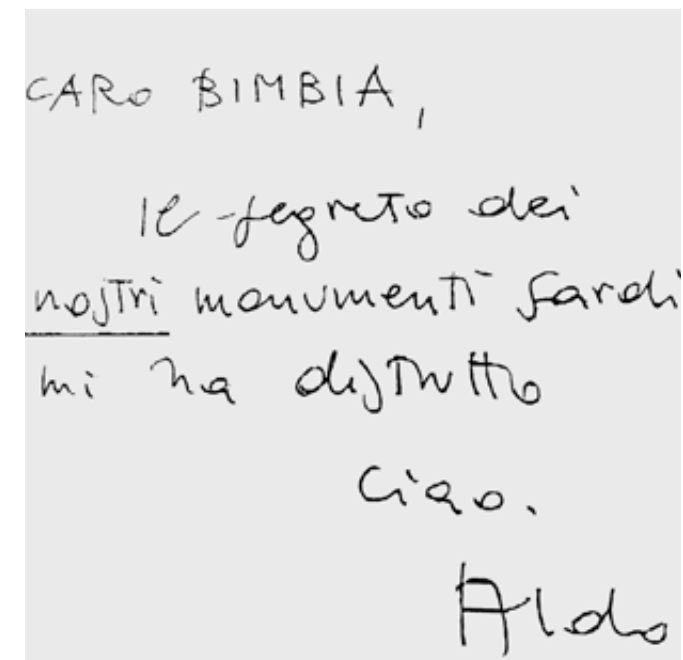 CARO BIMBIA,
Il segreto dei
nostri monumenti sardi
mi ha distrutto
Ciao.
Aldo